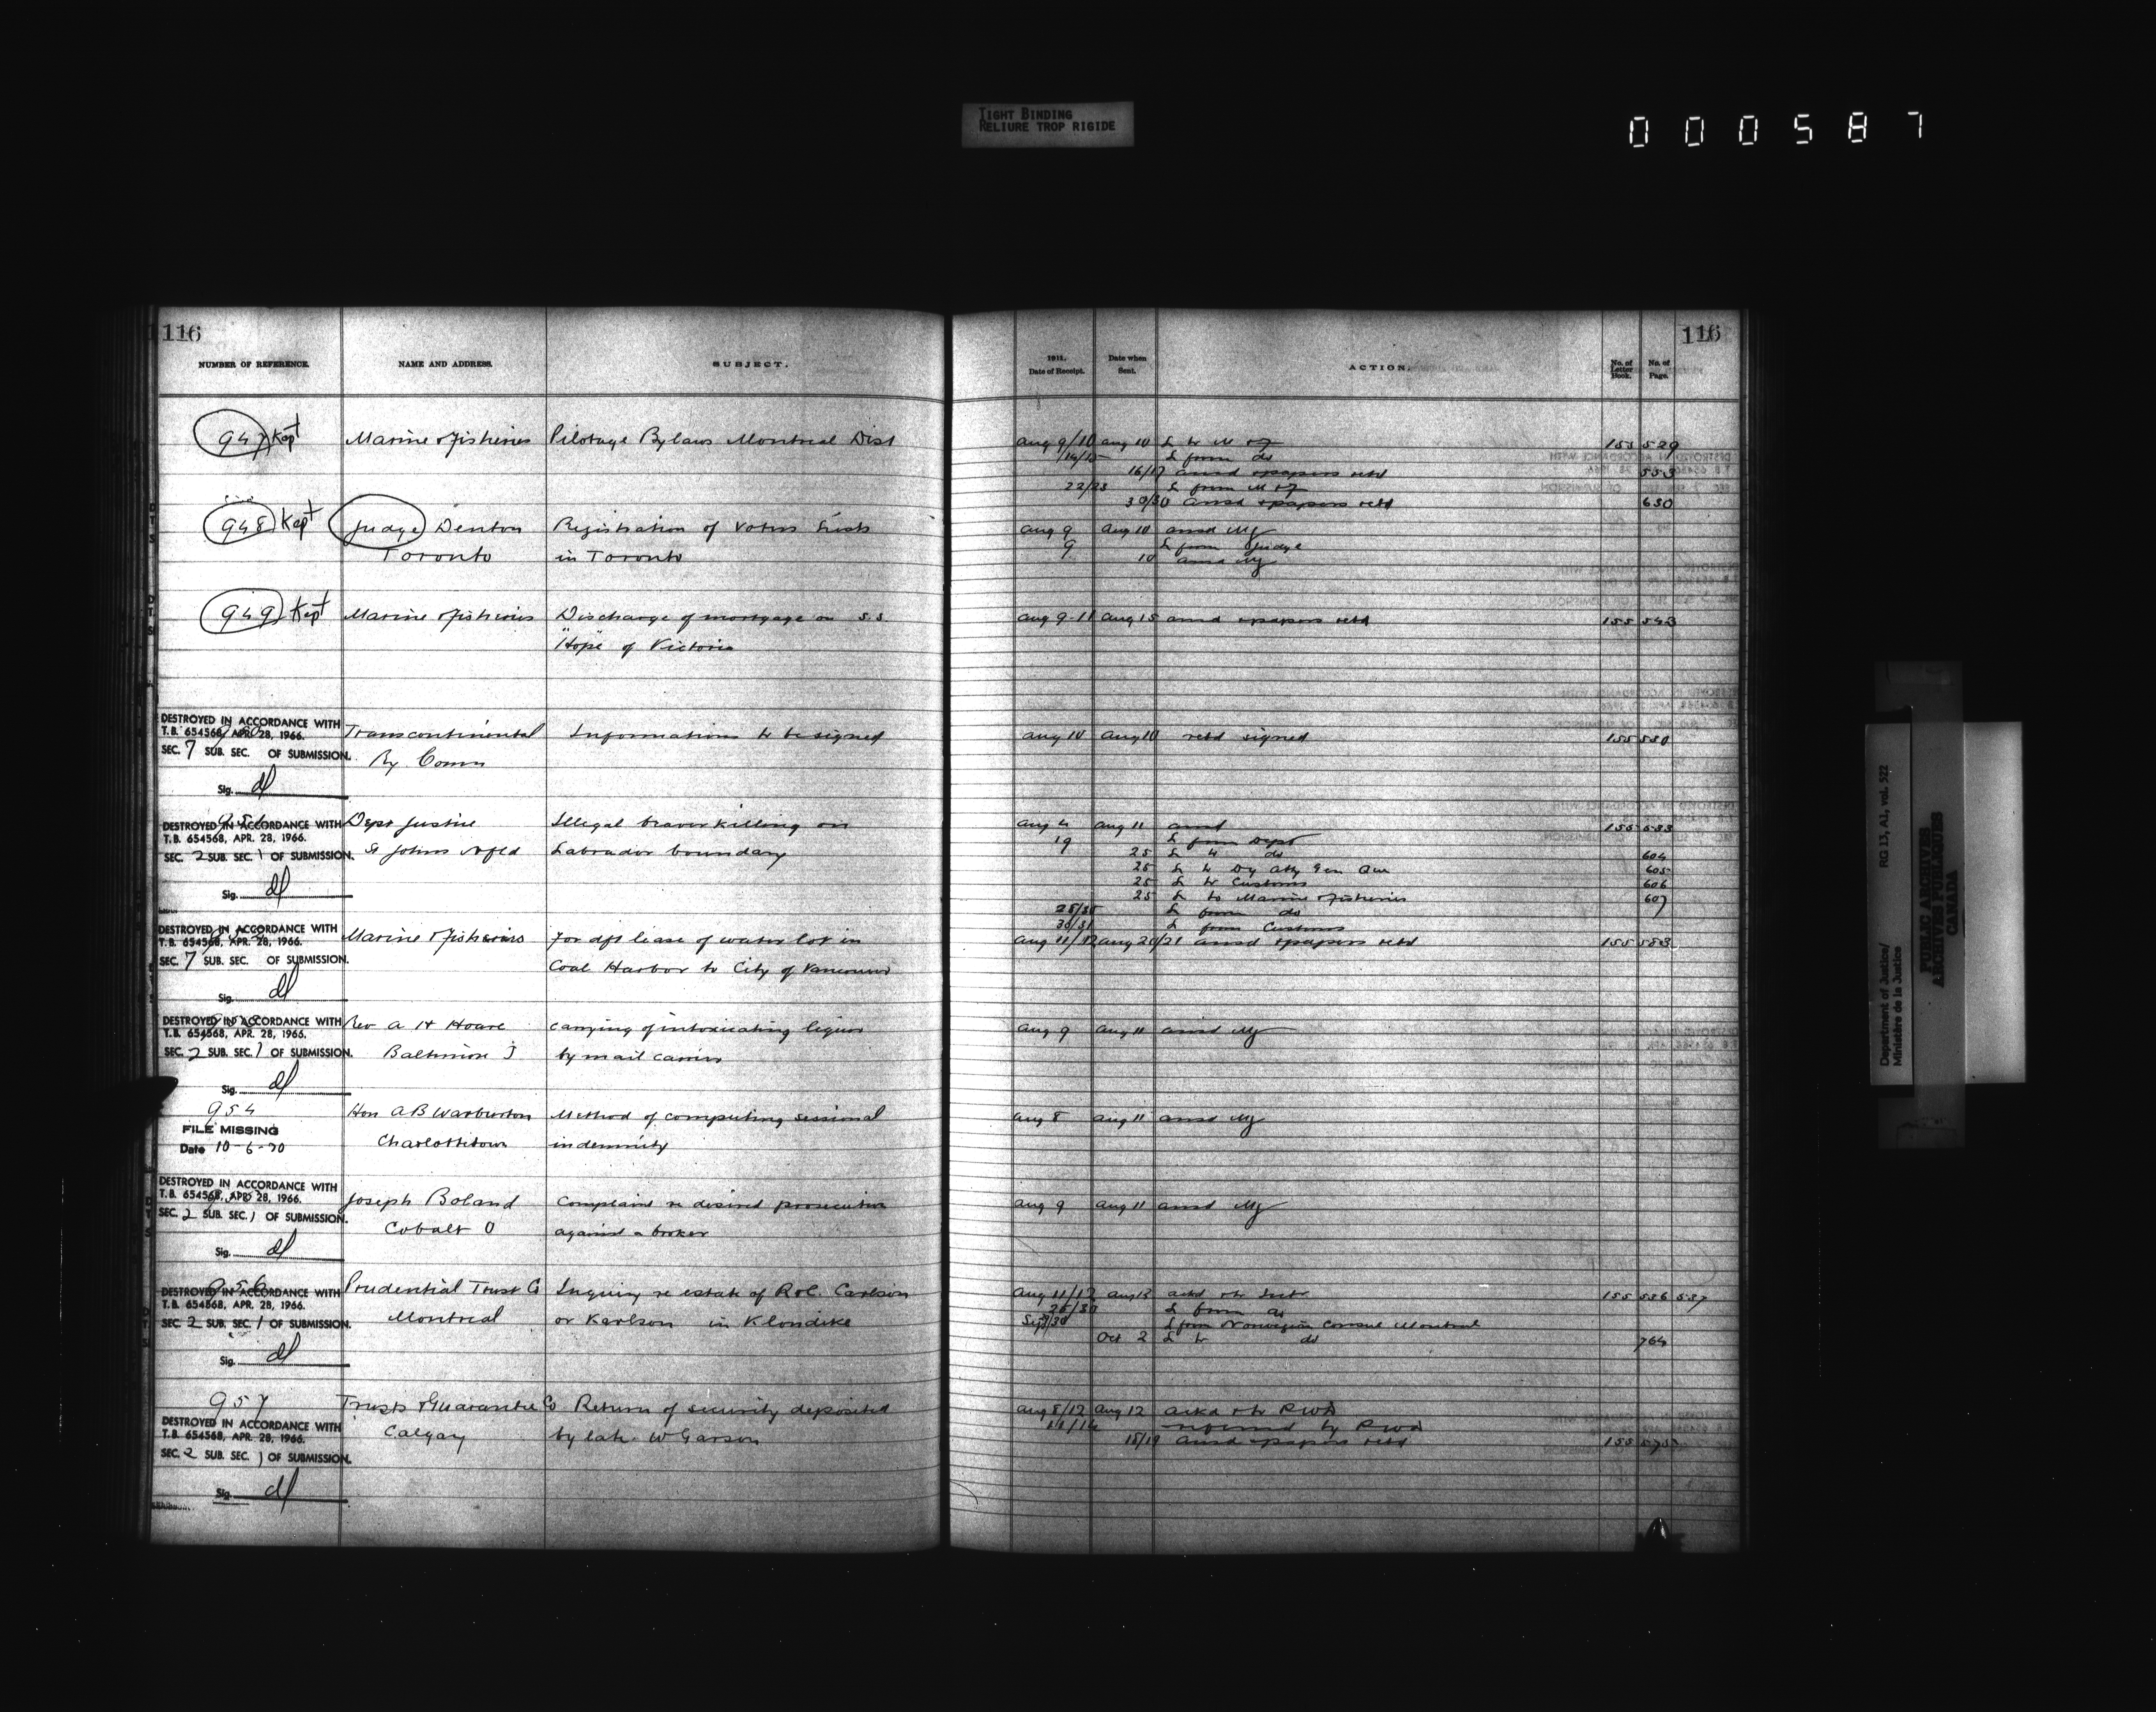 TIGHT BINDING
RELIURE TROP RIGIDE
000587
116
116
NUMBER OF REFERENCE.
NAME AND ADDRESS.
SUBJECT.
1911.
Date of Receipt.
Date when
Sent.
ACTION.
No. of
Letter
Book.
No. of
Page.
947 Kept Marine & Fisheries Pilotage Bylaws Montreal Dist Aug 9/10 Aug 10 L to M & F 155 529
14/15 L from do
16/17 ansd & papers retd 553
22/23 L from M & F
30/30 ansd & papers retd 630
948 Kept Judge Denton Registration of Voters Lists Aug 9 Aug 10 ansd My
Toronto in Toronto 9 L from Judge
10 ansd My
949 Kept Marine & Fisheries Discharge of mortgage on S.S. Aug 9-11 Aug 15 ansd & papers retd 155 543
"Hope" of Victoria
DESTROYED IN ACCORDANCE WITH
T.B. 654568, APR. 28, 1966.
SEC. 7 SUB. SEC. OF SUBMISSION.
Sig.
Transcontinental Informations to be signed Aug 10 Aug 10 retd signed 155 530
Ry Comn
951
DESTROYED IN ACCORDANCE WITH
T.B. 654568, APR. 28, 1966.
SEC. 2 SUB. SEC. 1 OF SUBMISSION.
Sig.
Dept Justice Illegal beaver killing on Aug 4 Aug 11 ansd 155 533
St Johns Nfld Labrador boundary 19 L from Dept
25 L to do 604
25 L to Dy Atty Gen Que 605
25 L to Customs 606
25 L to Marine & Fisheries 607
L from do
30/31 L from Customs
DESTROYED IN ACCORDANCE WITH
T.B. 654568, APR. 28, 1966.
SEC. 7 SUB. SEC. OF SUBMISSION.
Sig.
Marine & Fisheries For dft lease of water lot in Aug 11/12 Aug 21/21 ansd & papers retd 155 583
Coal Harbor to City of Vancouver
DESTROYED IN ACCORDANCE WITH
T.B. 654568, APR. 28, 1966.
SEC. 2 SUB. SEC. 1 OF SUBMISSION.
Sig.
Rev A H Hoare carrying of intoxicating liquor Aug 9 Aug 11 ansd My
Baltimore by mail carrier
954
FILE MISSING
Date 10-6-70
Hon A B Warburton Method of computing sessional Aug 8 Aug 11 ansd My
Charlottetown indemnity
DESTROYED IN ACCORDANCE WITH
T.B. 654568, APR. 28, 1966.
SEC. 2 SUB. SEC. 1 OF SUBMISSION.
Sig.
Joseph Boland Complaint re desired prosecution Aug 9 Aug 11 ansd My
Cobalt O against a broker
956
DESTROYED IN ACCORDANCE WITH
T.B. 654568, APR. 28, 1966.
SEC. 2 SUB. SEC. 1 OF SUBMISSION.
Sig.
Prudential Trust Co Inquiry re estate of R & C. Carlson Aug 11/12 Aug 12 ackd & to Intr 155 536 537
Montreal or Karlson in Klondike L from do
Sept L from Norwegian Consul Montreal
Oct 2 L to do 764
957
DESTROYED IN ACCORDANCE WITH
T.B. 654568, APR. 28, 1966.
SEC. 2 SUB. SEC. 1 OF SUBMISSION.
Sig.
Trusts & Guarantee Co Return of security deposited Aug 8/12 Aug 12 ackd & to PWD
Calgary by late W Garson referred by PWD
18/19 ansd & papers retd 155
Department of Justice/
Ministère de la Justice
RG 13, A1, vol. 522
PUBLIC ARCHIVES
ARCHIVES PUBLIQUES
CANADA